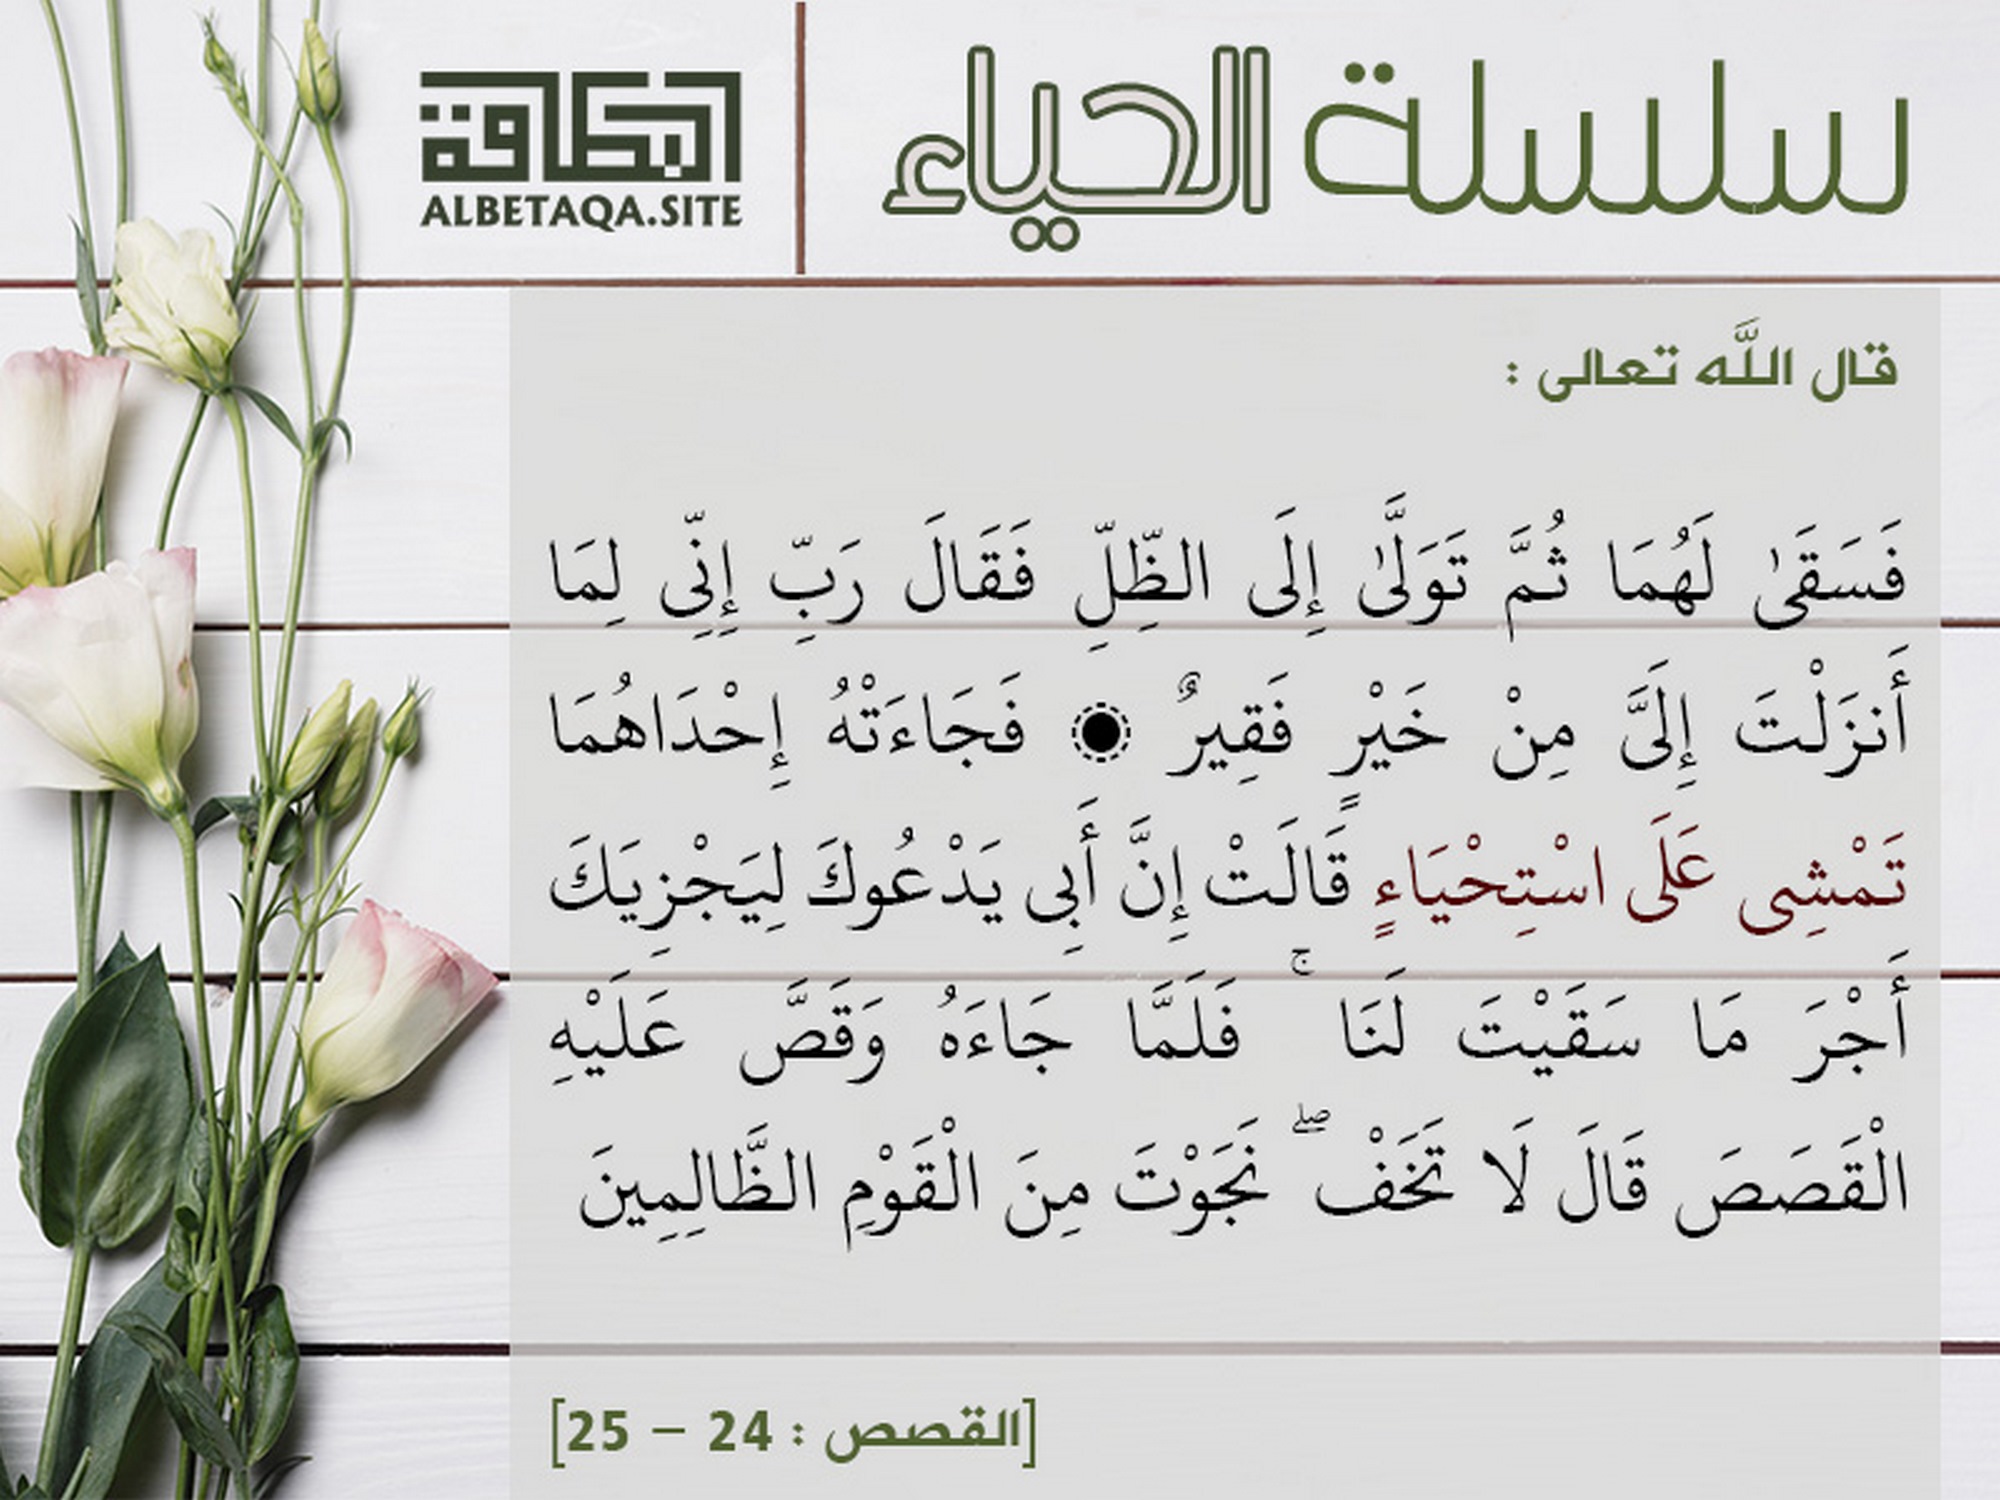 سلسلة الحياء
البطاقة
ALBETAQA.SITE
قال اللَّه تعالى :
فَسَقَىٰ لَهُمَا ثُمَّ تَوَلَّىٰ إِلَى الظِّلِّ فَقَالَ رَبِّ إِنِّي لِمَا
أَنزَلْتَ إِلَيَّ مِنْ خَيْرٍ فَقِيرٌ ۝ فَجَاءَتْهُ إِحْدَاهُمَا
تَمْشِي عَلَى اسْتِحْيَاءٍ قَالَتْ إِنَّ أَبِي يَدْعُوكَ لِيَجْزِيَكَ
أَجْرَ مَا سَقَيْتَ لَنَا ۚ فَلَمَّا جَاءَهُ وَقَصَّ عَلَيْهِ
الْقَصَصَ قَالَ لَا تَخَفْ ۖ نَجَوْتَ مِنَ الْقَوْمِ الظَّالِمِينَ
[القصص : 24 – 25]